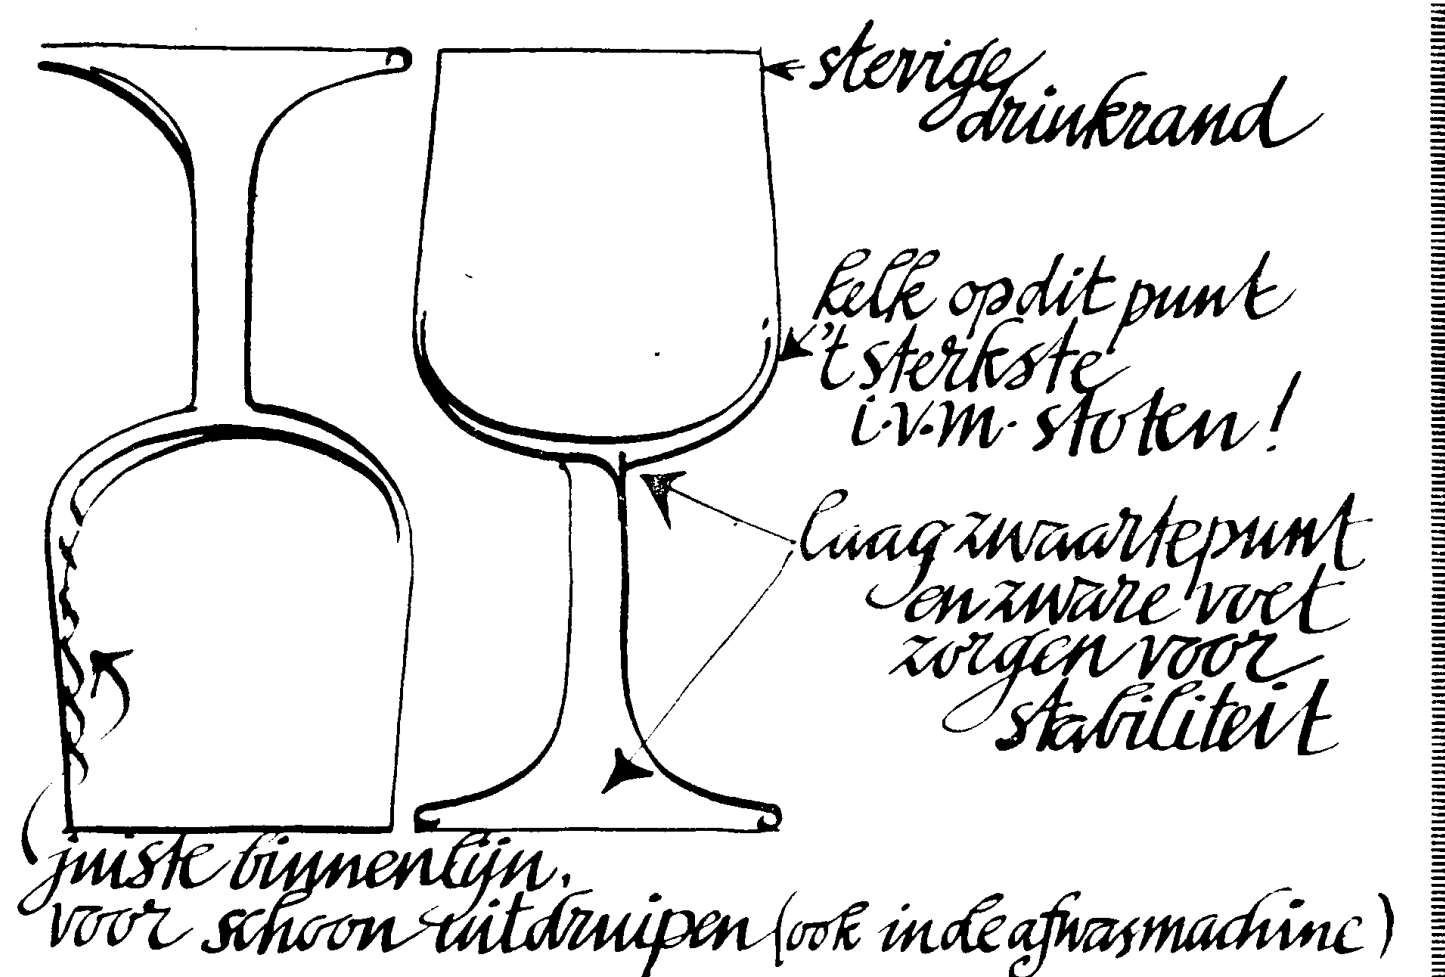 stevige
drinkrand
kelk op dit punt
't sterkste
i.v.m. stoten!
laag zwaartepunt
en zware voet
zorgen voor
stabiliteit
juiste binnenlijn,
voor schoon uitdruipen (ook in de afwasmachine)